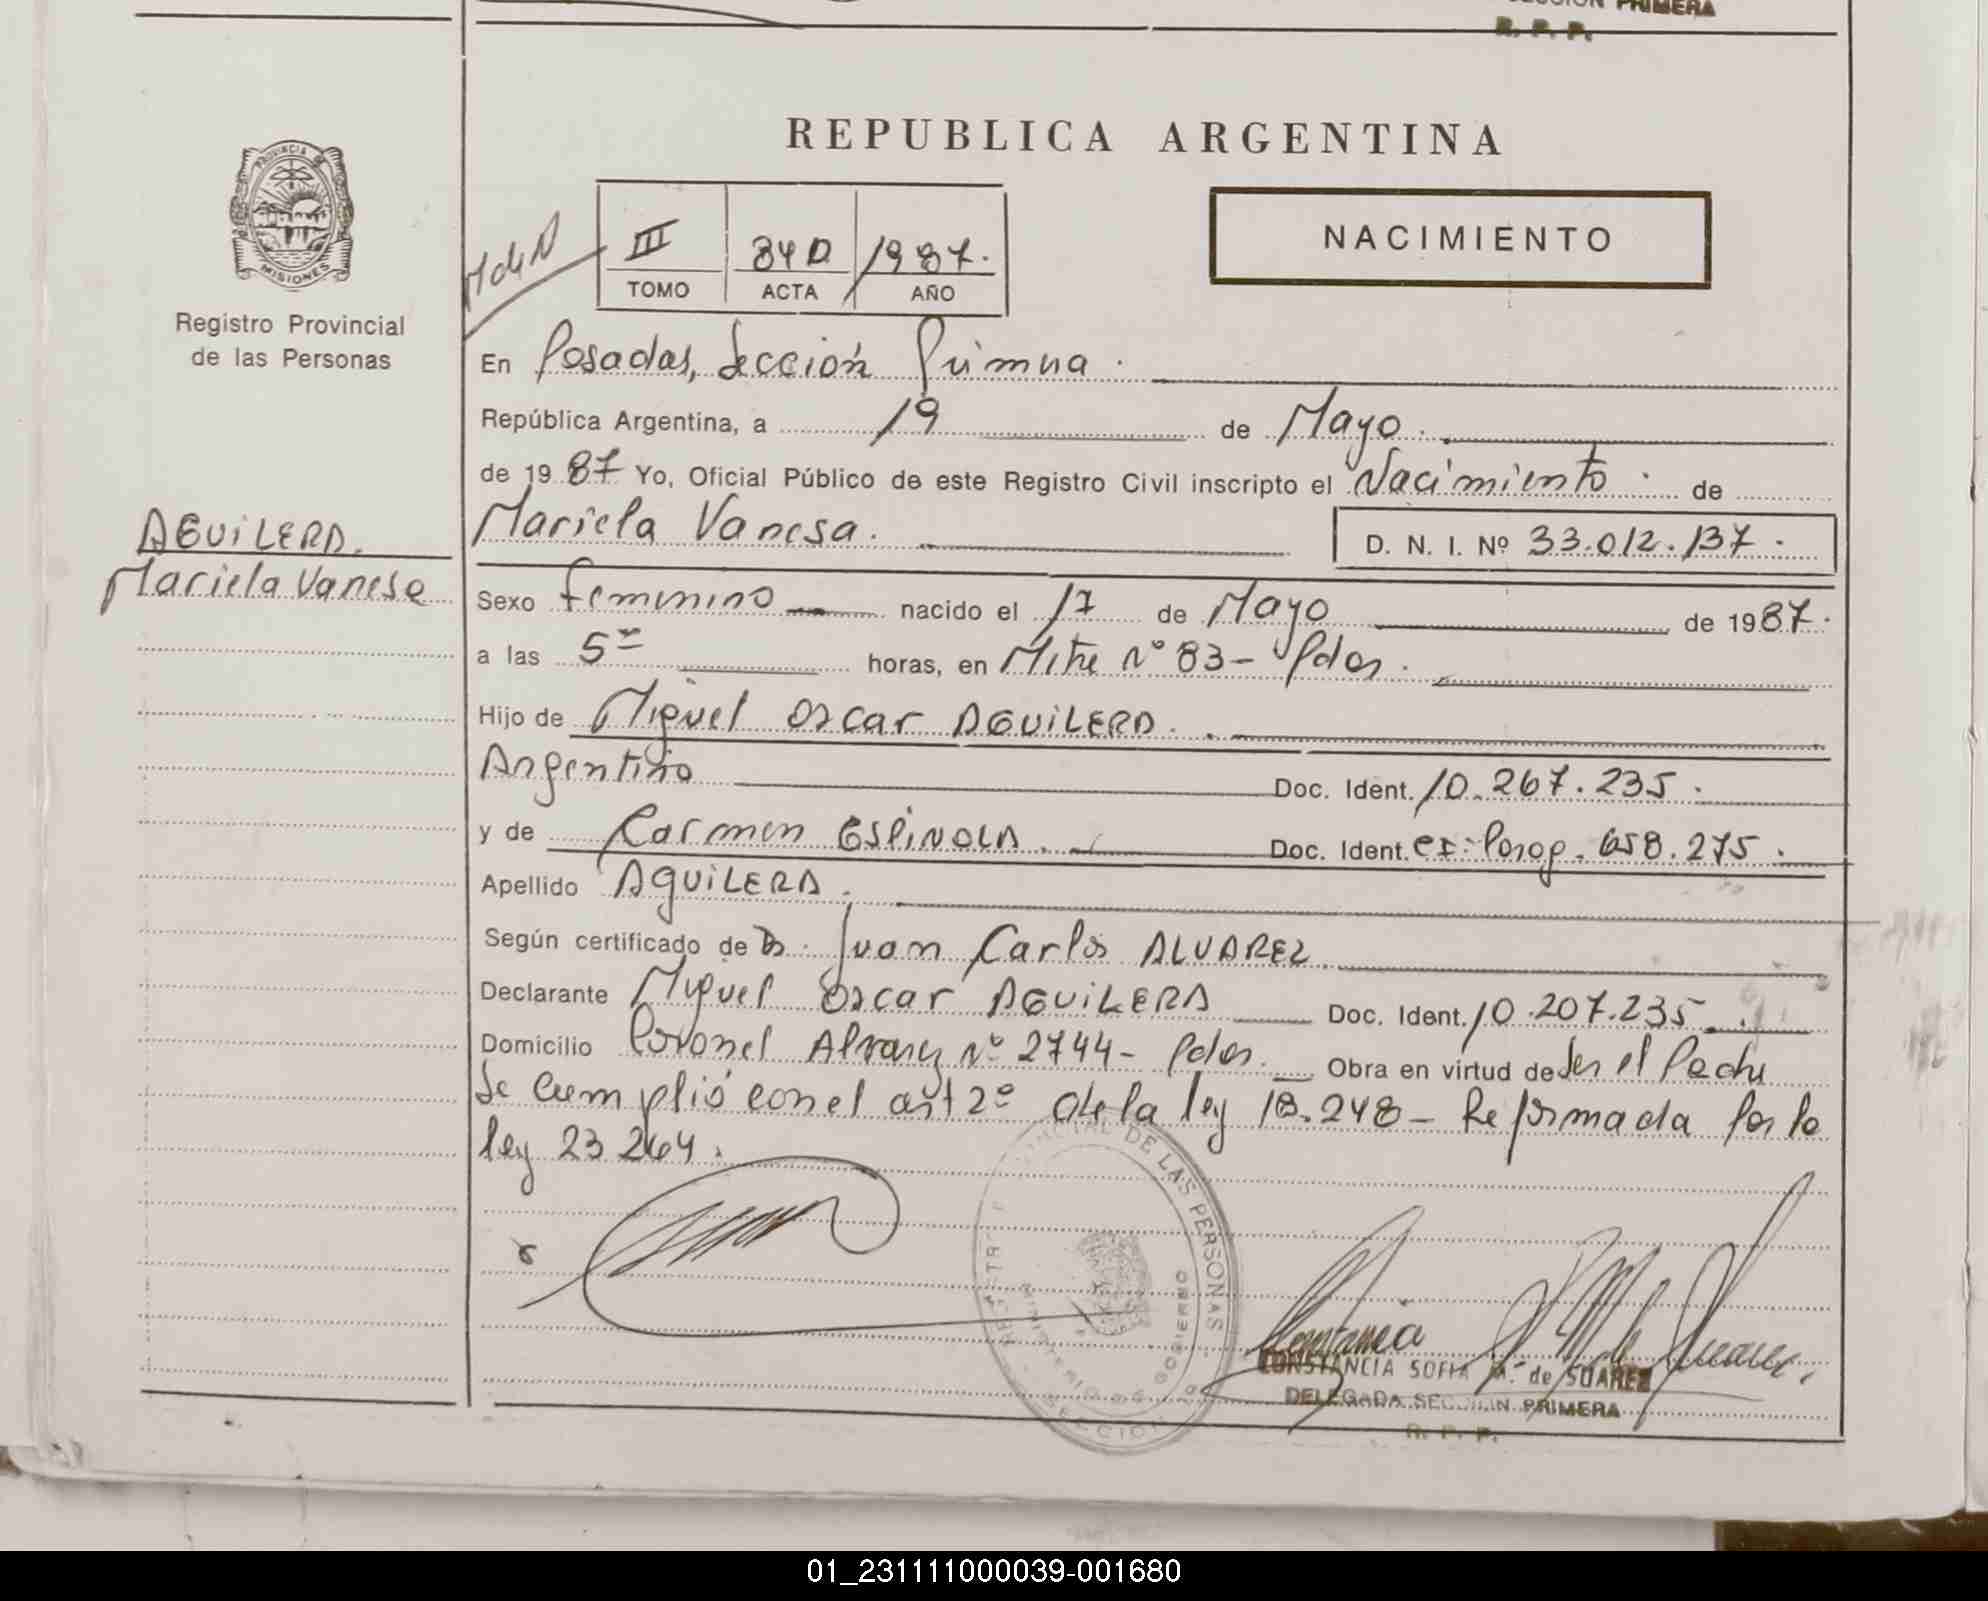 SECCION PRIMERA
R. P. P.
REPUBLICA ARGENTINA
PROVINCIA DE
MISIONES
Registro Provincial
de las Personas
III 340 1987.
TOMO ACTA AÑO
NACIMIENTO
En Posadas, Sección Primera.
República Argentina, a 19 de Mayo.
de 1987 Yo, Oficial Público de este Registro Civil inscripto el Nacimiento. de
AGUILERA.
Mariela Vanesa
Mariela Vanesa.
D. N. I. Nº 33.012.137.
Sexo femenino nacido el 17 de Mayo de 1987.
a las 5 horas, en Mitre Nº 83- Pdas.
Hijo de Miguel Oscar AGUILERA.
Argentino Doc. Ident. 10.267.235.
y de Carmen ESPINOLA. Doc. Ident. 658.275.
Apellido AGUILERA.
Según certificado de Juan Carlos ALVAREZ
Declarante Miguel Oscar AGUILERA Doc. Ident. 10.207.235
Domicilio Coronel Alvarez Nº 2744- Pdas. Obra en virtud de Ser el Padre
Se cumplió con el art 2º de la ley 18.248- Reformada por la
ley 23264.
DE LAS PERSONAS
MINISTERIO DE GOBIERNO
SECCION
CONSTANCIA SOFIA M. de SUAREZ
DELEGADA SECCION PRIMERA
R. P. P.
01_231111000039-001680